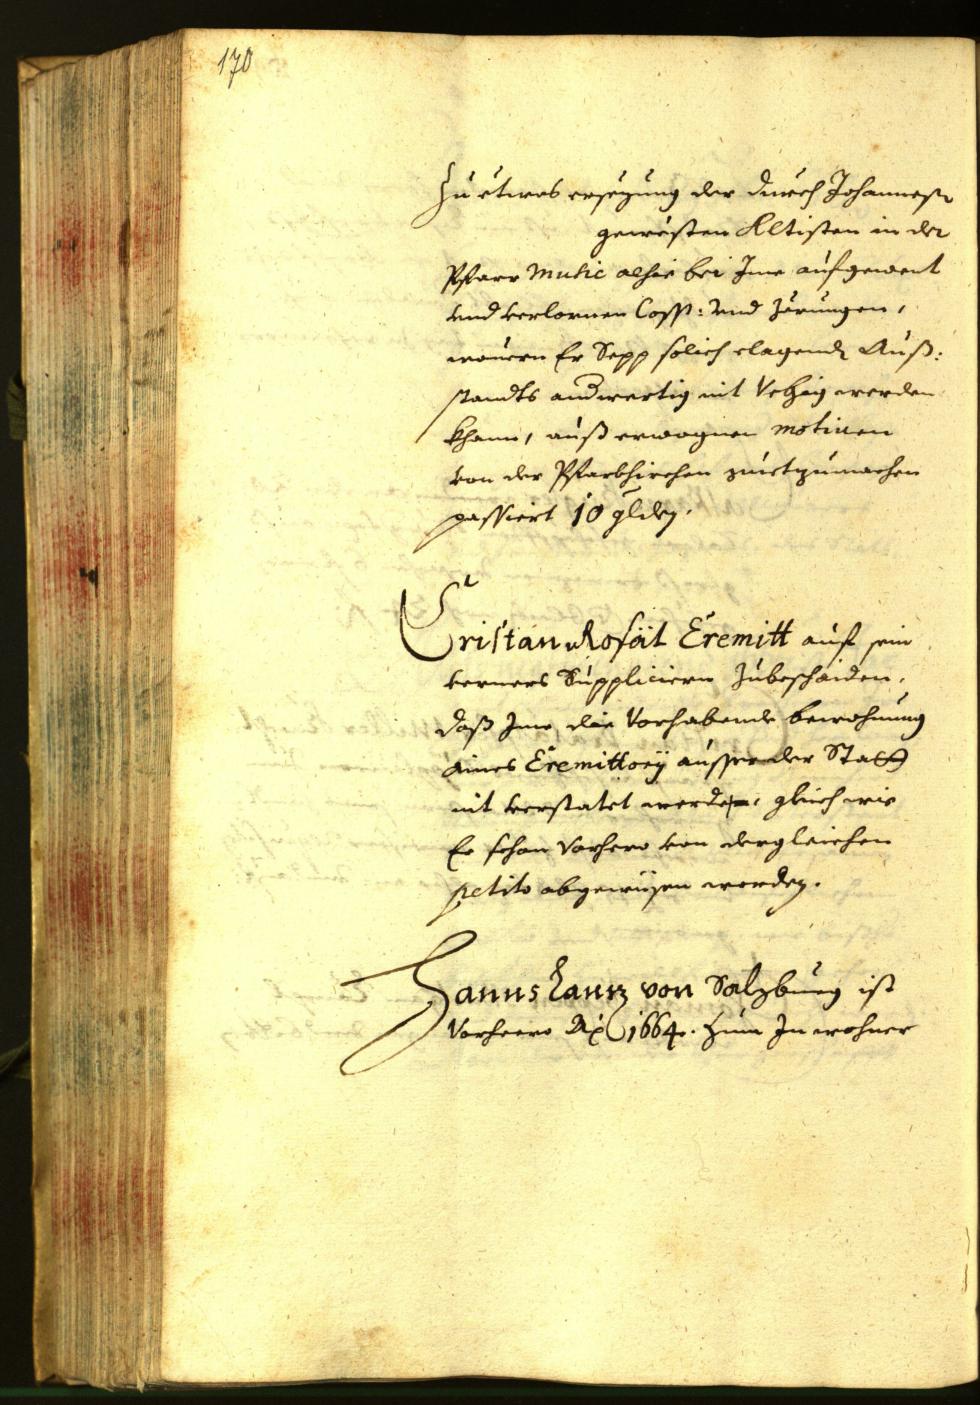 170
Zu etwas ersezung der durch Johannesn
gewesten Altisten in der
Pfarr Music alhie bei Ime aufgewent
und verlornen Cosst: und Zörungen,
wouern Er Sepp solich clagende Auß-
standts anderwertig nit vehig werden
khann, auß erwognen motiuen
von der Pfarrkhirchen guetzumachen
passiert 10 gulden.
Cristan Eremitt auf sein
verners Suppliciern Zubeschaiden,
daß Ime die Vorhabende bewohnung
aines Eremittorÿ ausser der Statt
nit verstatet werde, gleich wie
Er schon vorhero von dergleichen
petito abgewisen worden.
Hanns von Salzburg ist
Vorhero 1664. zum Inwohner